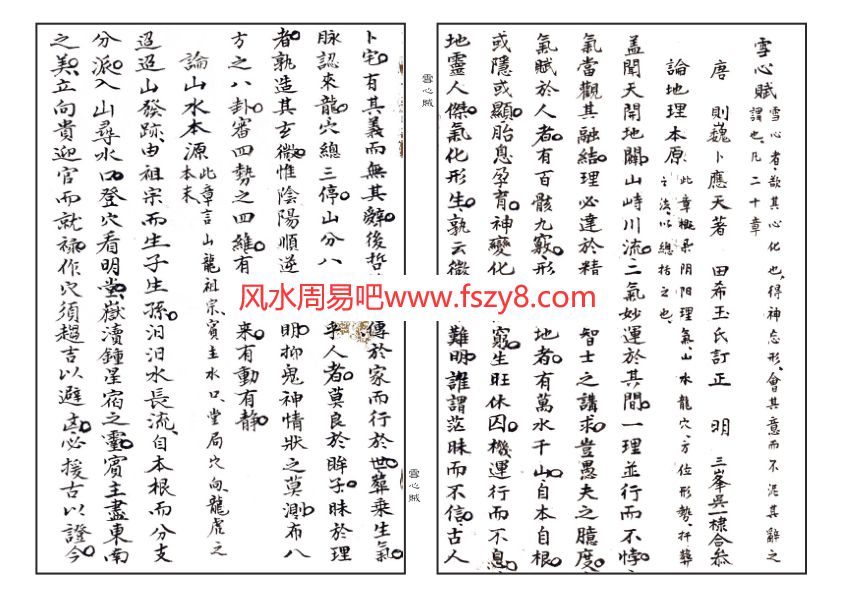 雪心賦
雪心者欲其心化也得神忘形會其意而不泥其辭之
謂也凡二十章
唐 則巍卜應天著 田希玉氏訂正 明 三峯吳一棣合叅
論地理本原
此章概柔阴阳理氣山水龍穴方位形勢扦葬
之法以總括之也
蓋聞天開地闢山峙川流二氣妙運於其間一理並行而不悖
氣當觀其融結理必達於精 智士之講求豈愚夫之臆度
氣賦於人者有百骸九竅形 地者有萬水千山自本自根
或隱或顯胎息孕育神變化 窮生旺休囚機運行而不息
地靈人傑氣化形生孰云微 難明誰謂茫昧而不信古人
雪心賦
雪心賊
卜宅有其義而無其辭後哲 傳於家而行於世葬乘生氣
脉認來龍穴總三停山分八 乎人者莫良於眸子昧於理
者孰造其玄微惟陰陽順逆 明抑鬼神情狀之莫測布八
方之八卦審四勢之四維有 来有動有静
論山水本源
此章言山龍祖宗賓主水口堂局穴向龍虎之
本末
迢迢山發跡由祖宗而生子生孫汨汨水長流自本根而分支
分派入山尋水口登穴看明堂嶽瀆鐘星宿之靈賓主盡東南
之美立向貴迎官而就禄作穴須趨吉以避凶必援古以證今
风水周易吧www.fszy8.com